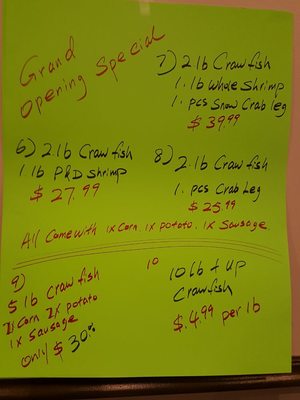 Grand
Opening Special
7) 2 lb Crawfish
1. lb Whole Shrimp
1. pcs Snow Crab leg
$ 39.99
6) 2 lb Crawfish
1 lb P&D Shrimp
$ 27.99
8) 2 lb Crawfish
1. pcs Crab Leg
$ 25.99
All Come with 1x Corn. 1x potato. 1x Sausage.
9)
5 lb Crawfish
2x Corn 2x potato
1x Sausage
Only $ 30.%
10
10 lb + up
Crawfish
$.4.99 per lb